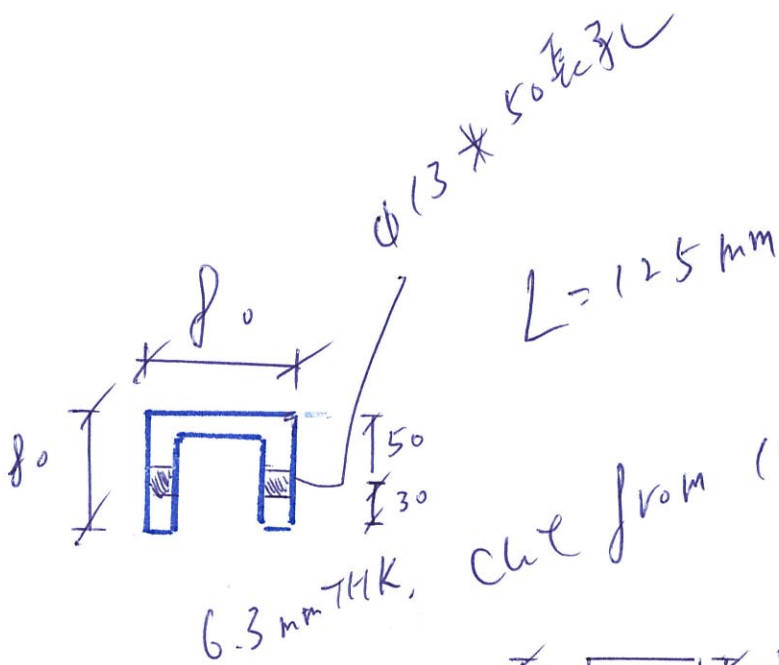 φ13 * 50長孔
L=125 mm
80
80
50
30
6.3 mm THK, cut from (